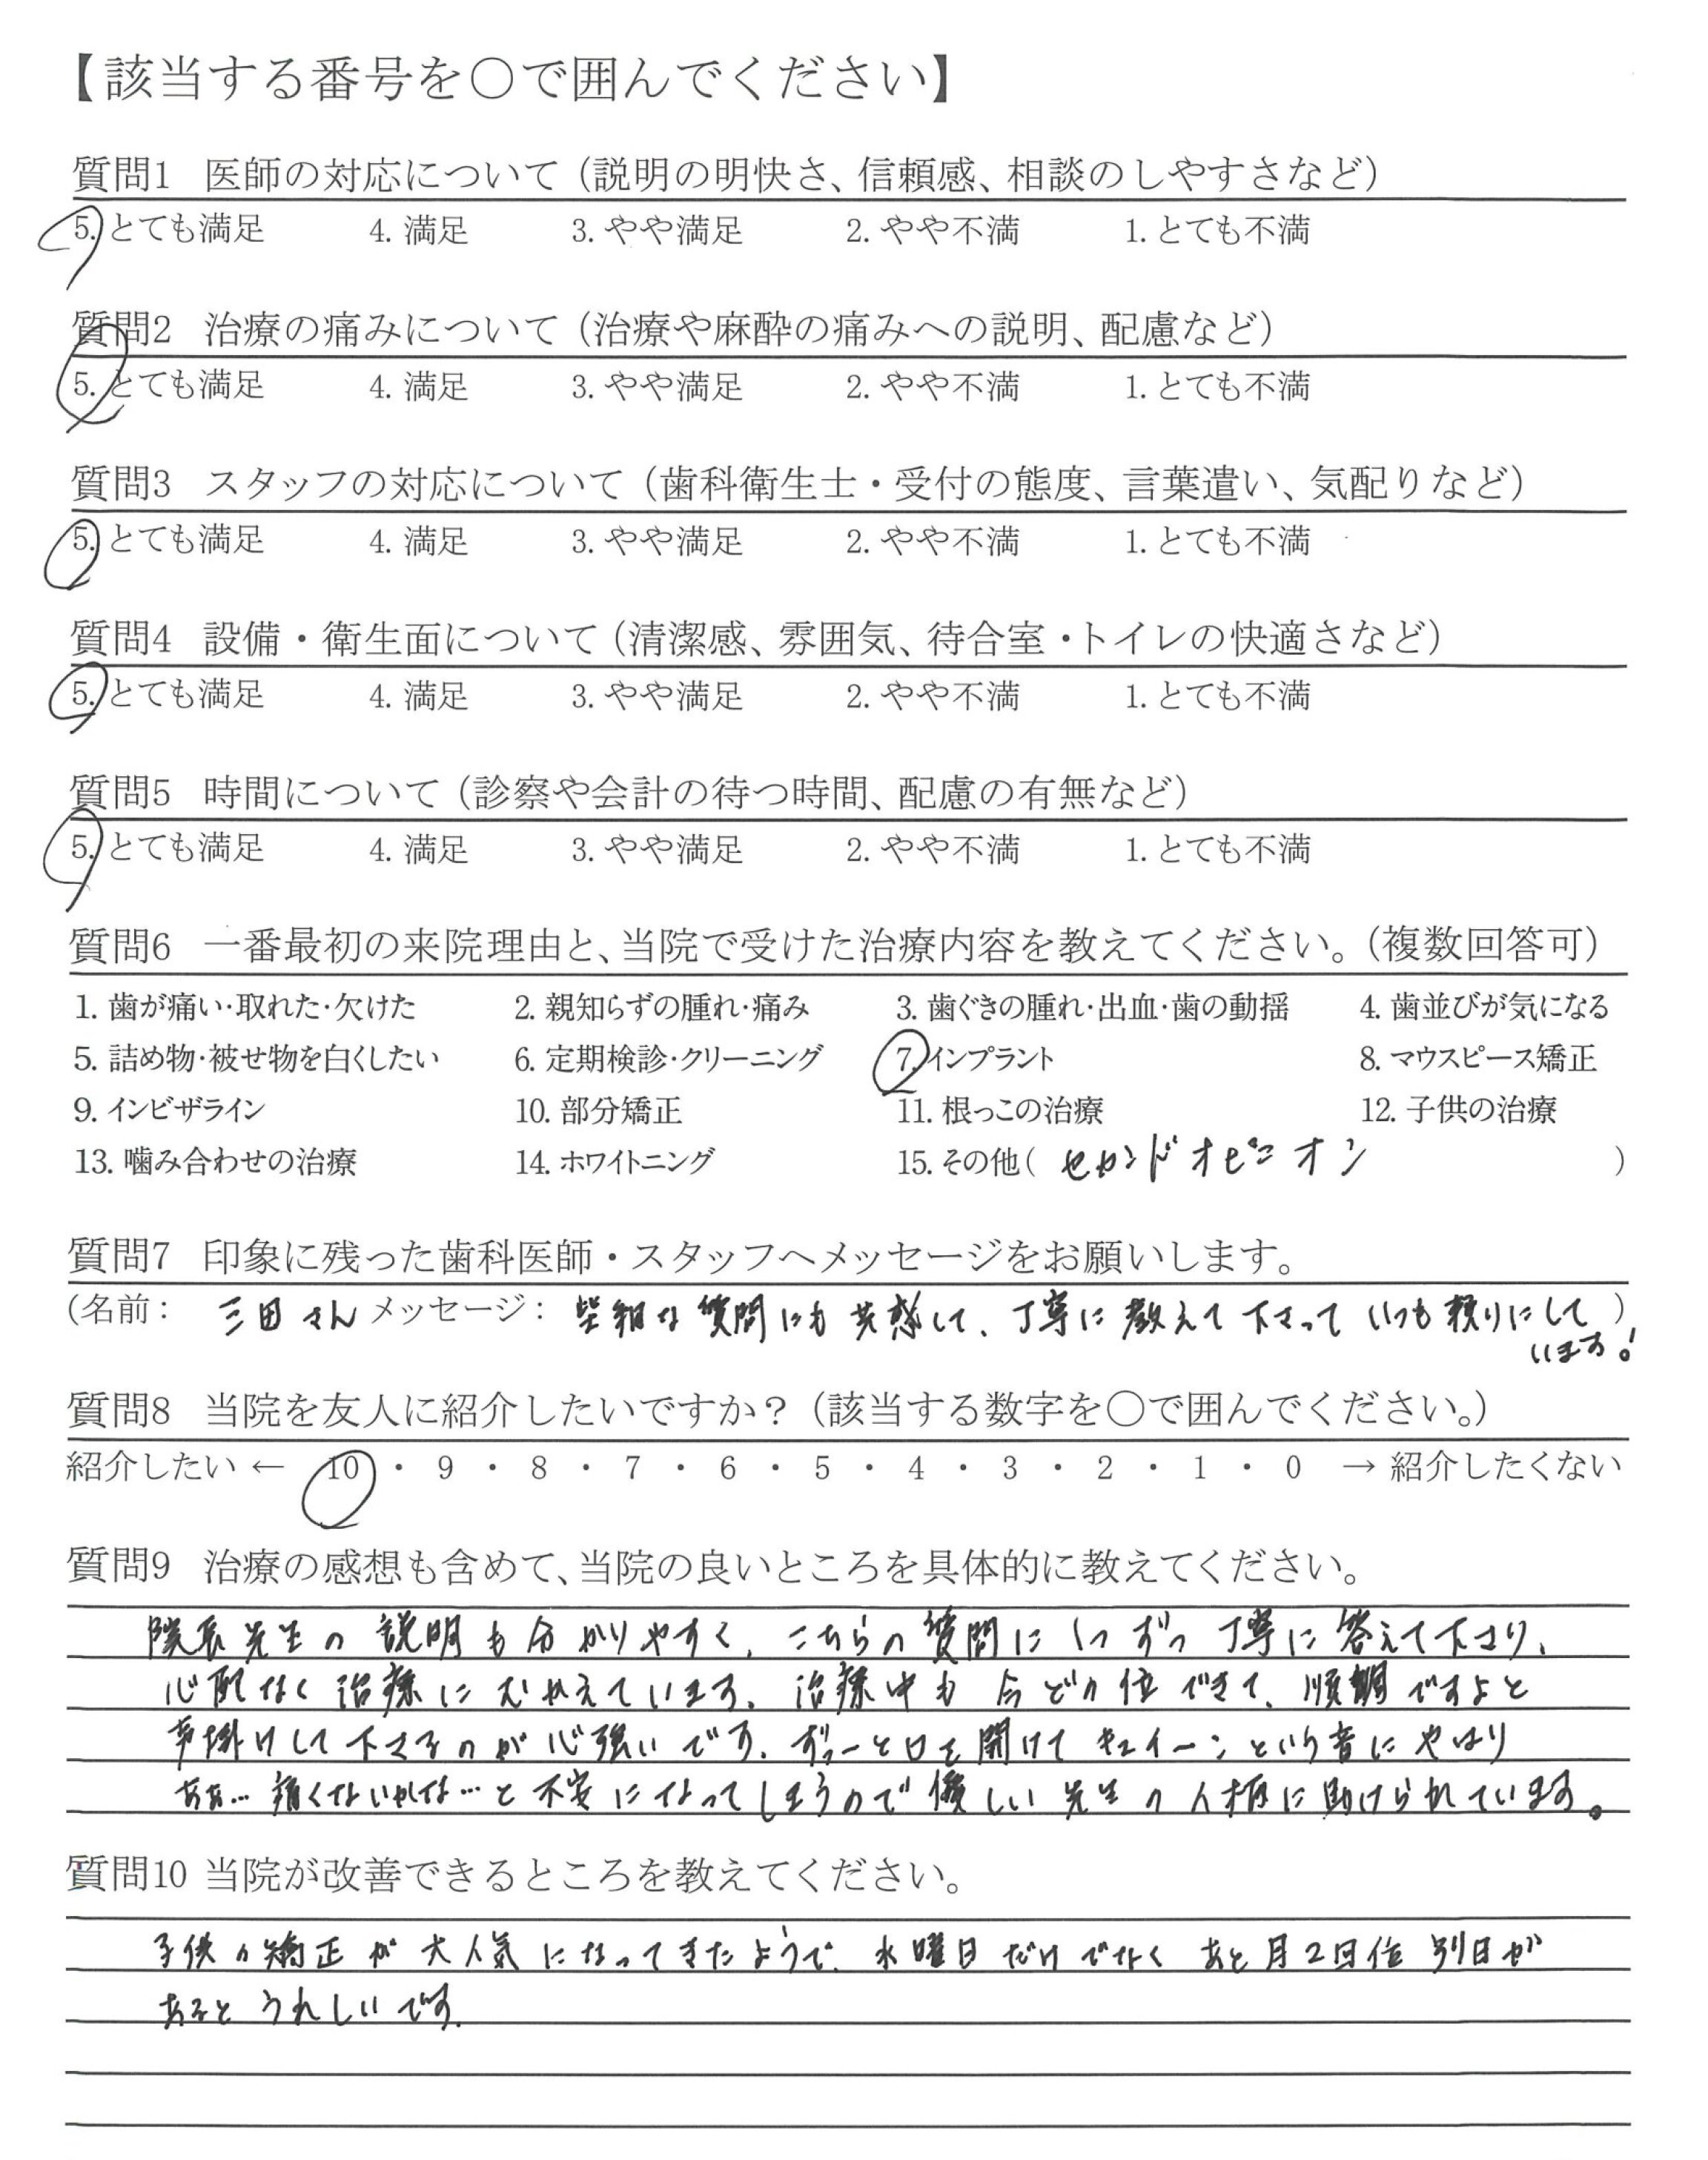 【該当する番号を○で囲んでください】
質問1 医師の対応について（説明の明快さ、信頼感、相談のしやすさなど）
5. とても満足 4. 満足 3. やや満足 2. やや不満 1. とても不満
質問2 治療の痛みについて（治療や麻酔の痛みへの説明、配慮など）
5. とても満足 4. 満足 3. やや満足 2. やや不満 1. とても不満
質問3 スタッフの対応について（歯科衛生士・受付の態度、言葉遣い、気配りなど）
5. とても満足 4. 満足 3. やや満足 2. やや不満 1. とても不満
質問4 設備・衛生面について（清潔感、雰囲気、待合室・トイレの快適さなど）
5. とても満足 4. 満足 3. やや満足 2. やや不満 1. とても不満
質問5 時間について（診察や会計の待つ時間、配慮の有無など）
5. とても満足 4. 満足 3. やや満足 2. やや不満 1. とても不満
質問6 一番最初の来院理由と、当院で受けた治療内容を教えてください。（複数回答可）
1. 歯が痛い・取れた・欠けた 2. 親知らずの腫れ・痛み 3. 歯ぐきの腫れ・出血・歯の動揺 4. 歯並びが気になる
5. 詰め物・被せ物を白くしたい 6. 定期検診・クリーニング 7. インプラント 8. マウスピース矯正
9. インビザライン 10. 部分矯正 11. 根っこの治療 12. 子供の治療
13. 噛み合わせの治療 14. ホワイトニング 15. その他（ セカンドオピニオン ）
質問7 印象に残った歯科医師・スタッフへメッセージをお願いします。
（名前： 三田さん メッセージ： 些細な質問にも共感して、丁寧に教えて下さっていつも頼りにして）
います！
質問8 当院を友人に紹介したいですか？（該当する数字を○で囲んでください。）
紹介したい ← 10 ・ 9 ・ 8 ・ 7 ・ 6 ・ 5 ・ 4 ・ 3 ・ 2 ・ 1 ・ 0 → 紹介したくない
質問9 治療の感想も含めて、当院の良いところを具体的に教えてください。
院長先生の説明も分かりやすく、こちらの質問に1つずつ丁寧に答えて下さり、
心配なく治療にむかえています。治療中も今どの位できて、順調ですよと
声掛けして下さるのが心強いです。ずーっと口を開けてキュイーンという音にやはり
ああ…痛くないかな…と不安になってしまうので優しい先生の人柄に助けられています。
質問10 当院が改善できるところを教えてください。
子供の矯正が大人気になってきたようで、水曜日だけでなくあと月2回位別日が
あるとうれしいです。